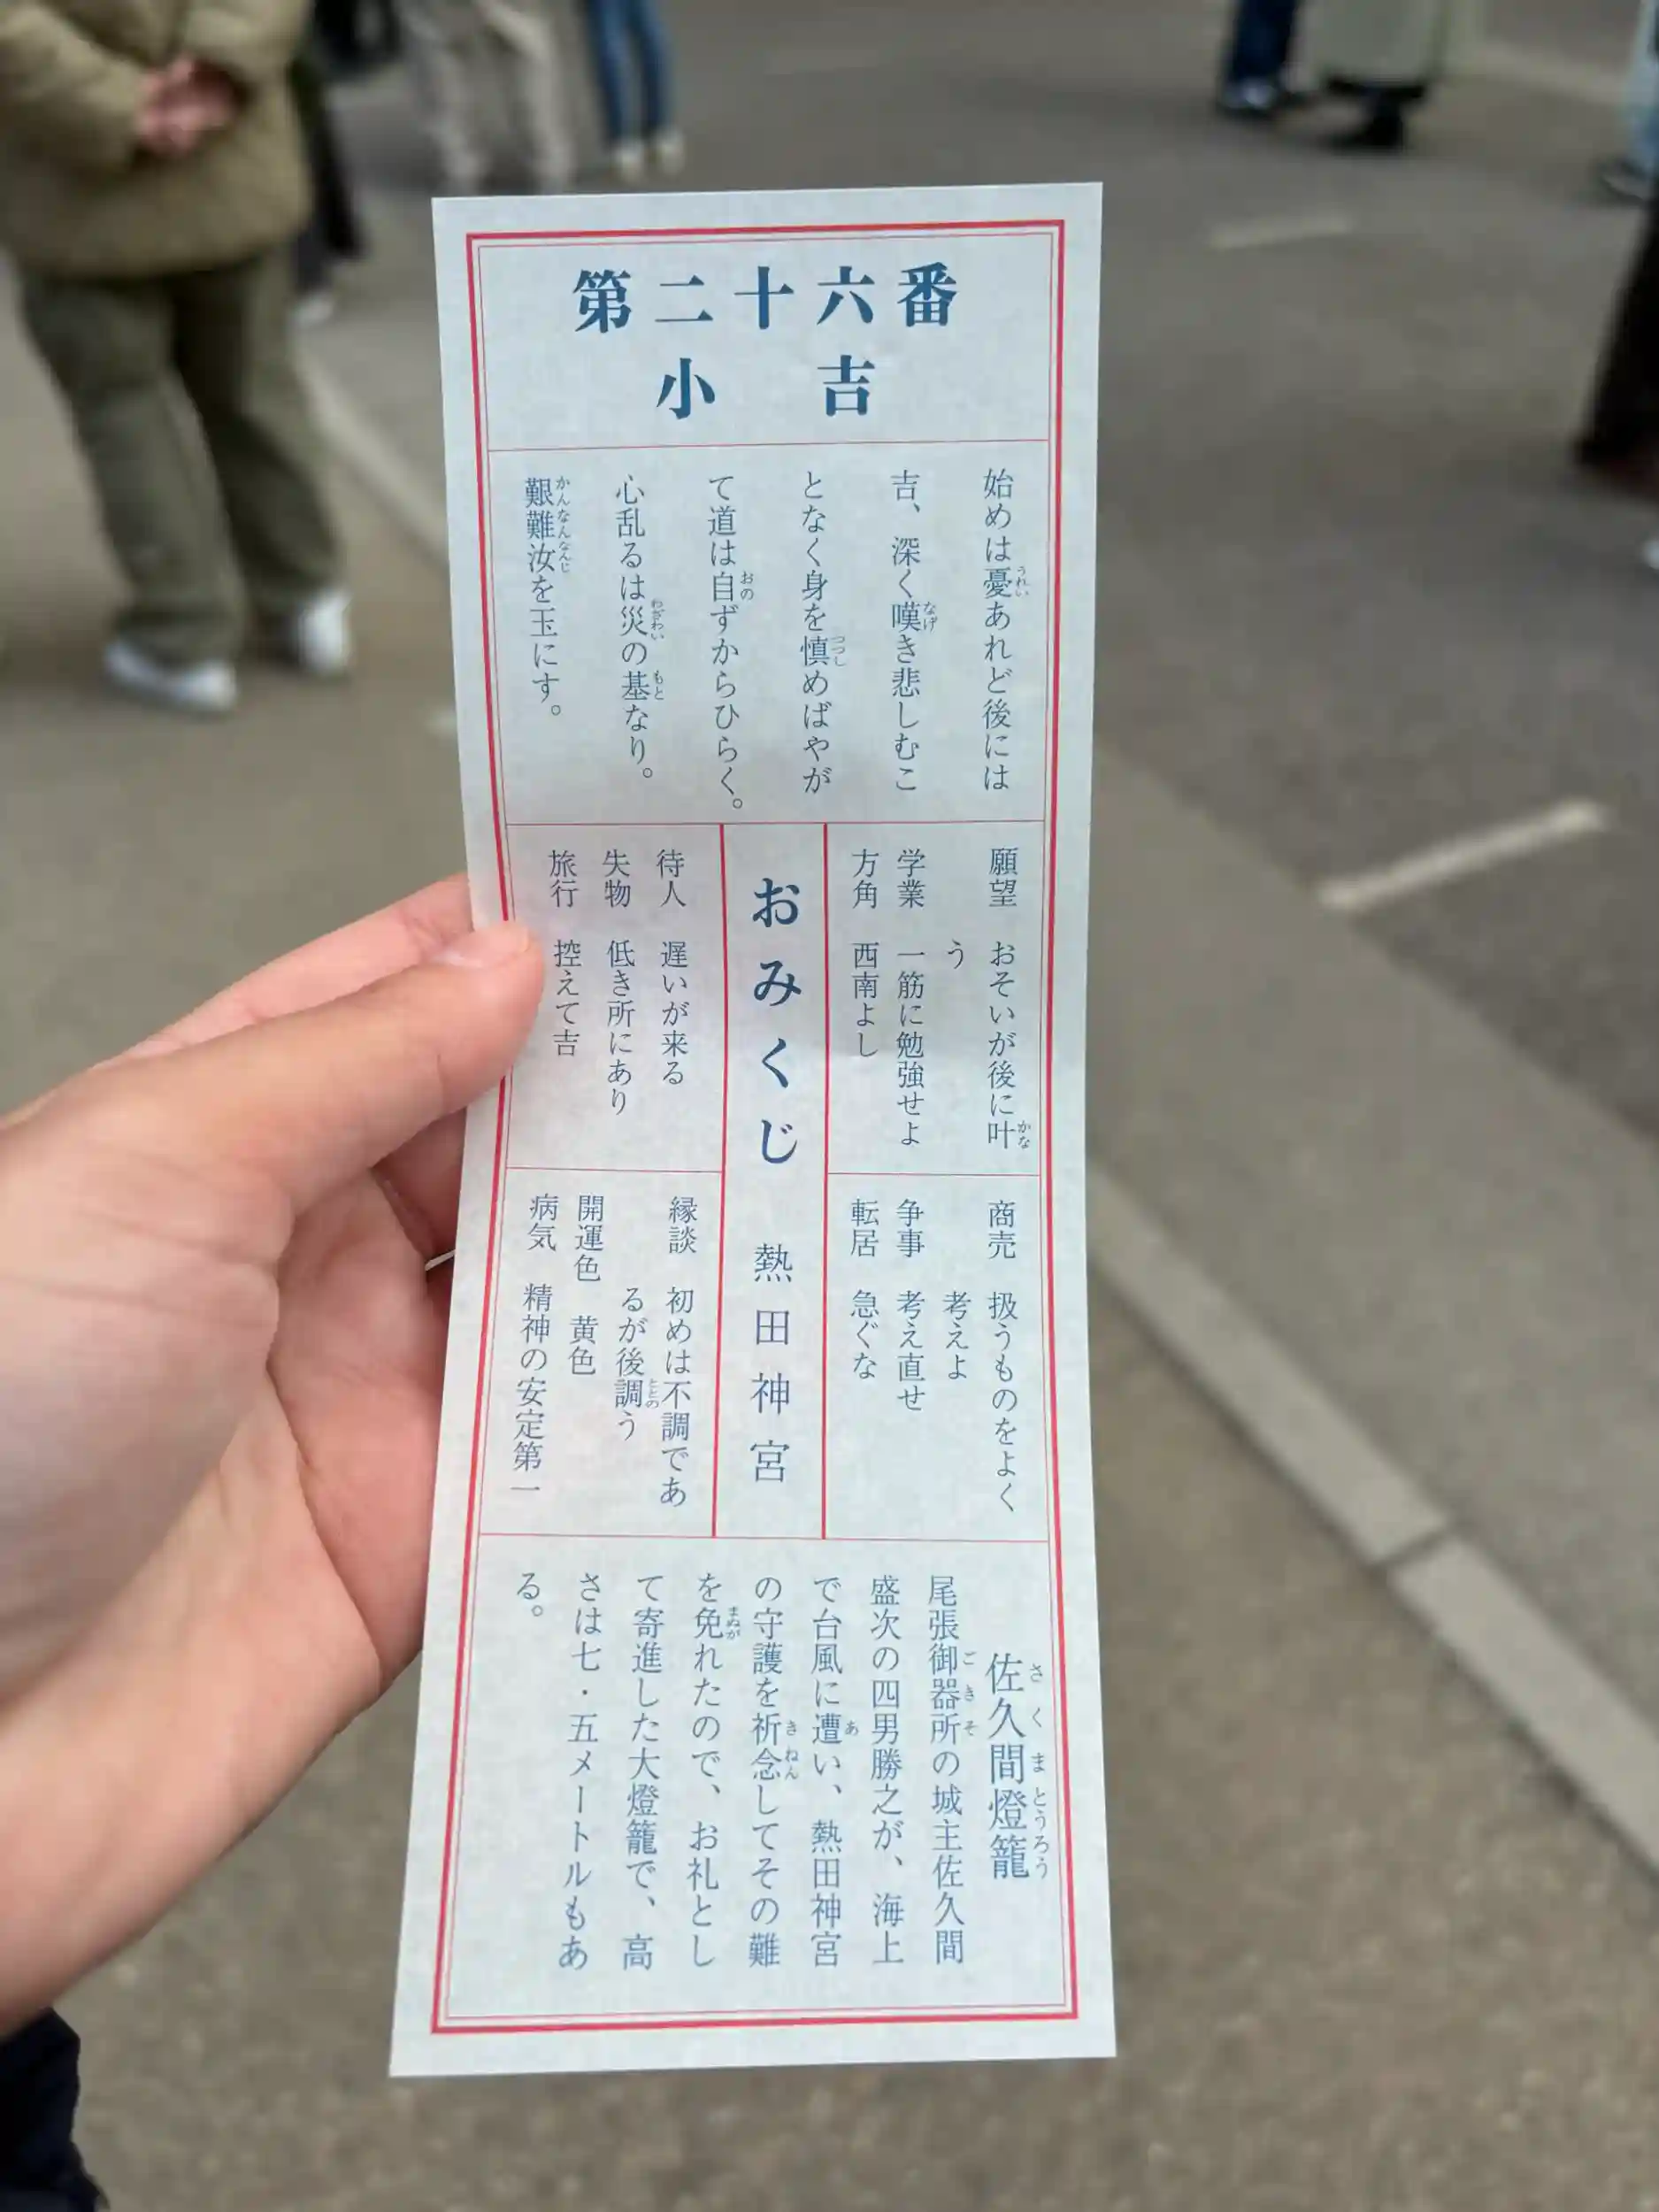 第二十六番
小吉
始めは憂あれど後には
うれい
吉、深く嘆き悲しむこ
なげ
となく身を慎めばやが
つつし
て道は自ずからひらく。
おの
心乱るは災の基なり。
わざわい もと
艱難汝を玉にす。
かんなんなんじ
願望 おそいが後に叶
かな
う
学業 一筋に勉強せよ
方角 西南よし
商売 扱うものをよく
考えよ
争事 考え直せ
転居 急ぐな
おみくじ 熱田神宮
待人 遅いが来る
失物 低き所にあり
旅行 控えて吉
縁談 初めは不調であ
るが後調う
ととの
開運色 黄色
病気 精神の安定第一
佐久間燈籠
さくまとうろう
尾張御器所の城主佐久間
ごきそ
盛次の四男勝之が、海上
で台風に遭い、熱田神宮
あ
の守護を祈念してその難
きねん
を免れたので、お礼とし
まぬが
て寄進した大燈籠で、高
さは七・五メートルもあ
る。